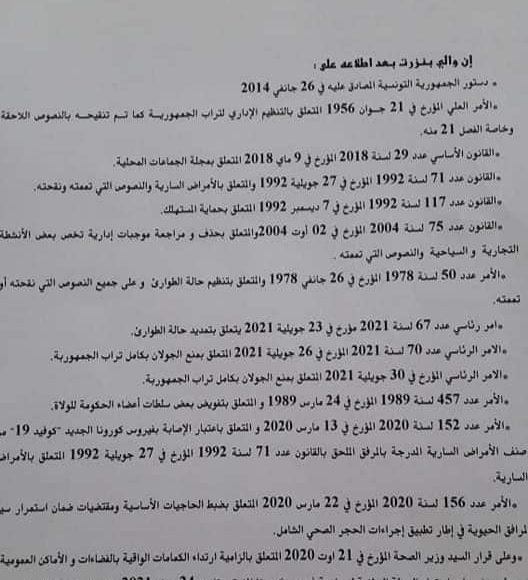 إن والي بنزرت بعد اطلاعه على :
• دستور الجمهورية التونسية المصادق عليه في 26 جانفي 2014
•الأمر العلي المؤرخ في 21 جوان 1956 المتعلق بالتنظيم الإداري لتراب الجمهورية كما تم تنقيحه بالنصوص اللاحقة
وخاصة الفصل 21 منه.
•القانون الأساسي عدد 29 لسنة 2018 المؤرخ في 9 ماي 2018 المتعلق بمجلة الجماعات المحلية.
•القانون عدد 71 لسنة 1992 المؤرخ في 27 جويلية 1992 والمتعلق بالأمراض السارية والنصوص التي تممته ونقحته.
•القانون عدد 117 لسنة 1992 المؤرخ في 7 ديسمبر 1992 المتعلق بحماية المستهلك.
•القانون عدد 75 لسنة 2004 المؤرخ في 02 أوت 2004والمتعلق بحذف و مراجعة موجبات إدارية تخص بعض الأنشطة
التجارية و السياحية والنصوص التي تممته .
•الأمر عدد 50 لسنة 1978 المؤرخ في 26 جانفي 1978 والمتعلق بتنظيم حالة الطوارئ و على جميع النصوص التي نقحته أو
تممته.
•امر رئاسي عدد 67 لسنة 2021 مؤرخ في 23 جويلية 2021 يتعلق بتمديد حالة الطوارئ.
•الامر الرئاسي عدد 70 لسنة 2021 المؤرخ في 26 جويلية 2021 المتعلق بمنع الجولان بكامل تراب الجمهورية.
•الامر الرئاسي المؤرخ في 30 جويلية 2021 المتعلق بمنع الجولان بكامل تراب الجمهورية.
•الأمر عدد 457 لسنة 1989 المؤرخ في 24 مارس 1989 و المتعلق بتفويض بعض سلطات أعضاء الحكومة للولاة.
•الأمر عدد 152 لسنة 2020 المؤرخ في 13 مارس 2020 و المتعلق باعتبار الإصابة بفيروس كورونا الجديد "كوفيد 19-
صنف الأمراض السارية المدرجة بالمرفق الملحق بالقانون عدد 71 لسنة 1992 المؤرخ في 27 جويلية 1992 المتعلق بالأمراض
السارية.
•الأمر عدد 156 لسنة 2020 المؤرخ في 22 مارس 2020 المتعلق بضبط الحاجيات الأساسية ومقتضيات ضمان استمرار
لمرافق الحيوية في إطار تطبيق إجراءات الحجر الصحي الشامل.
•وعلى قرار السيد وزير الصحة المؤرخ في 21 اوت 2020 المتعلق بالزامية ارتداء الكمامات الواقية بالفضاءات و الأماكن العمومية